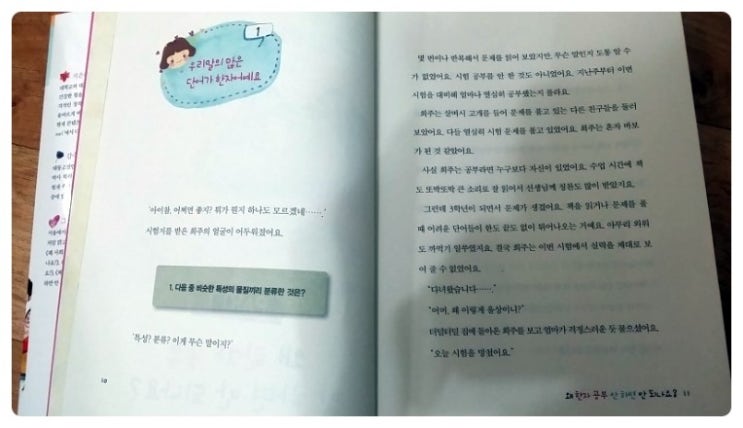 1
우리말의 많은
단어가 한자어예요
'아이참, 어쩌면 좋지? 뭐가 뭔지 하나도 모르겠네……'
시험지를 받은 희주의 얼굴이 어두워졌어요.
1. 다음 중 비슷한 특성의 물질끼리 분류한 것은?
'특성? 분류? 이게 무슨 말이지?'
10
몇 번이나 반복해서 문제를 읽어 보았지만, 무슨 말인지 도통 알 수
가 없었어요. 시험 공부를 안 한 것도 아니었어요. 지난주부터 이번
시험을 대비해 얼마나 열심히 공부했는지 몰라요.
희주는 살며시 고개를 들어 문제를 풀고 있는 다른 친구들을 둘러
보았어요. 다들 열심히 시험 문제를 풀고 있었어요. 희주는 혼자 바보
가 된 것 같았어요.
사실 희주는 공부라면 누구보다 자신이 있었어요. 수업 시간에 책
도 또박또박 큰 소리로 잘 읽어서 선생님께 칭찬도 많이 받았지요.
그런데 3학년이 되면서 문제가 생겼어요. 책을 읽거나 문제를 풀
때 어려운 단어들이 한도 끝도 없이 튀어나오는 거예요. 아무리 외워
도 까먹기 일쑤였지요. 결국 희주는 이번 시험에서 실력을 제대로 보
여 줄 수 없었어요.
"다녀왔습니다……."
"어머, 왜 이렇게 울상이니?"
터덜터덜 집에 돌아온 희주를 보고 엄마가 걱정스러운 듯 물으셨어요.
"오늘 시험을 망쳤어요."
왜 한자 공부 안 하면 안 되나요? 11